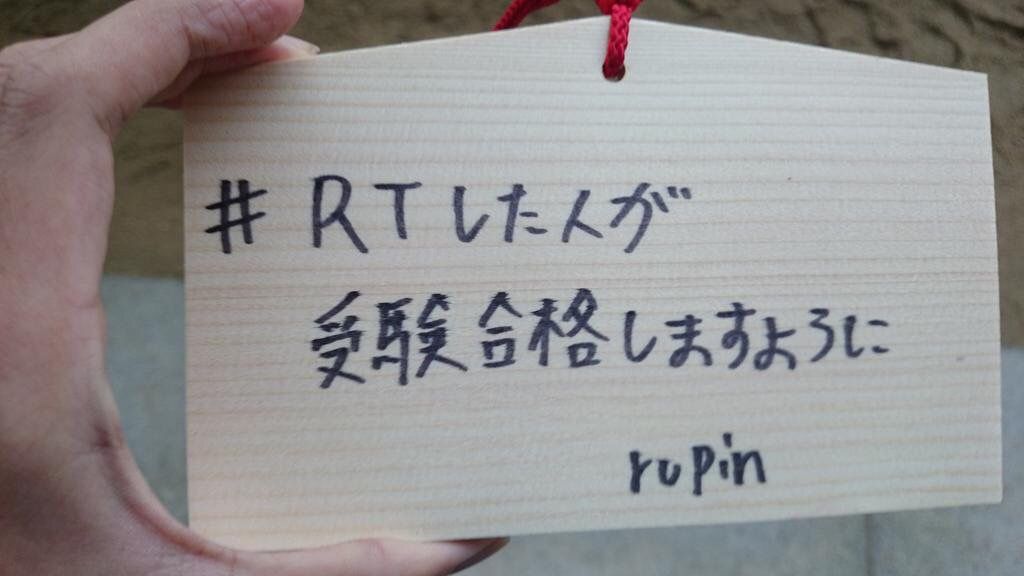 # RTした人が
受験合格しますように
rupin